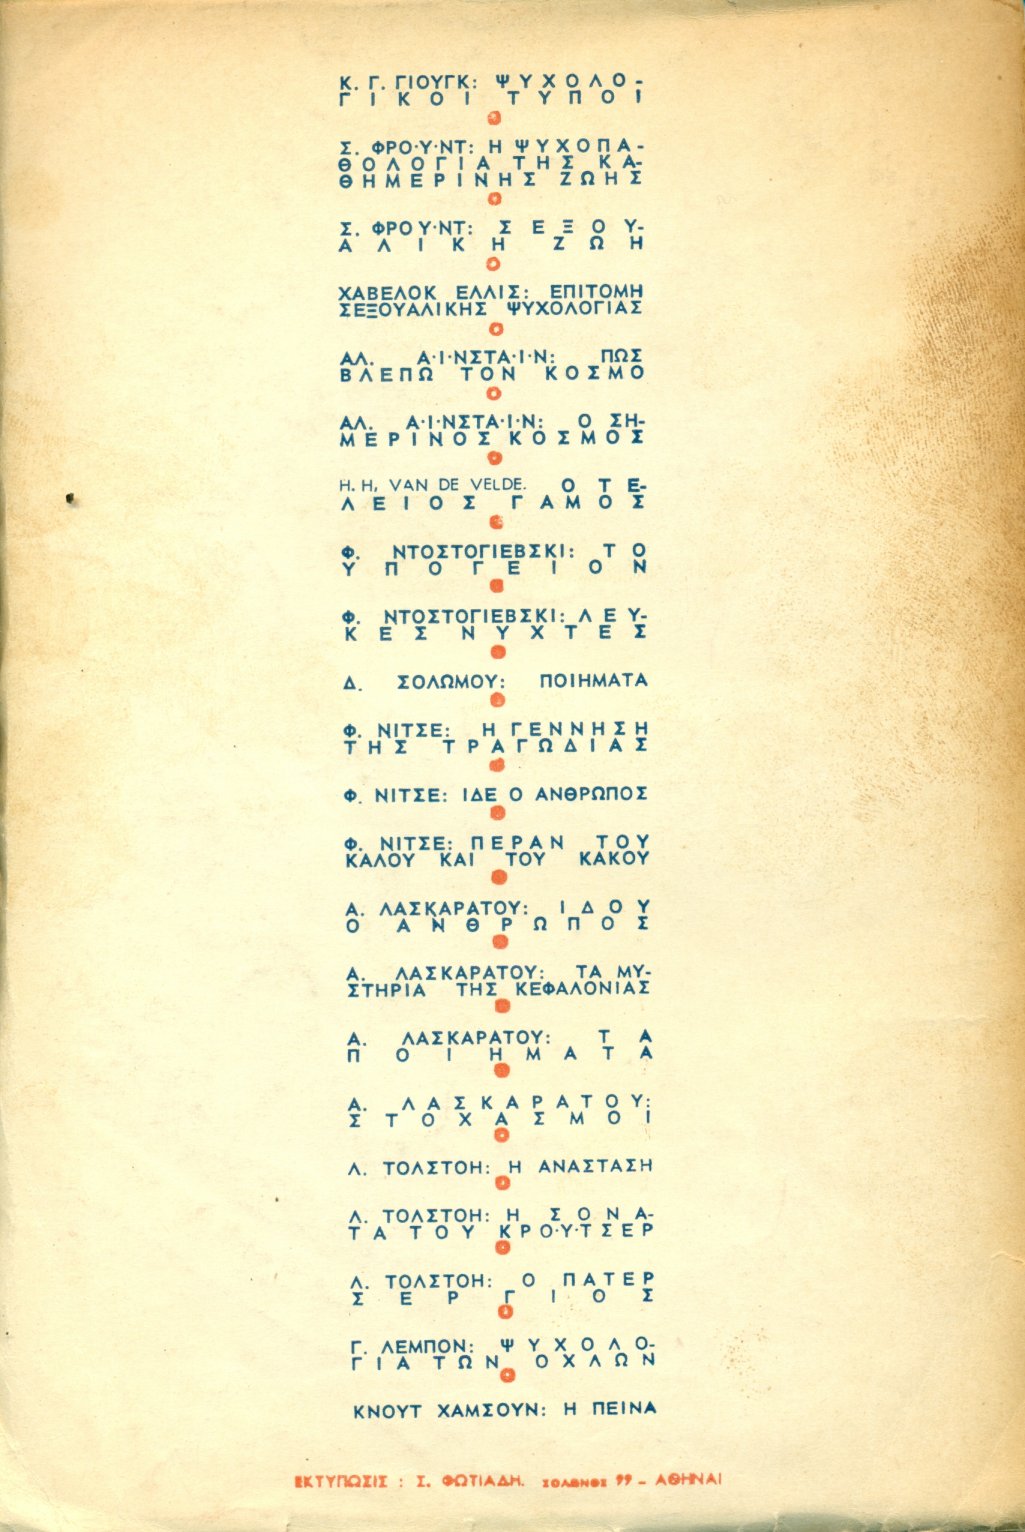 Κ. Γ. ΓΙΟΥΓΚ: ΨΥΧΟΛΟ-
ΓΙΚΟΙ ΤΥΠΟΙ
Σ. ΦΡΟ·Υ·ΝΤ: Η ΨΥΧΟΠΑ-
ΘΟΛΟΓΙΑ ΤΗΣ ΚΑ-
ΘΗΜΕΡΙΝΗΣ ΖΩΗΣ
Σ. ΦΡΟΥ·ΝΤ: ΣΕΞΟΥ-
ΑΛΙΚΗ ΖΩΗ
ΧΑΒΕΛΟΚ ΕΛΛΙΣ: ΕΠΙΤΟΜΗ
ΣΕΞΟΥΑΛΙΚΗΣ ΨΥΧΟΛΟΓΙΑΣ
ΑΛ. Α·Ι·ΝΣΤΑ·Ι·Ν: ΠΩΣ
ΒΛΕΠΩ ΤΟΝ ΚΟΣΜΟ
ΑΛ. Α·Ι·ΝΣΤΑ·Ι·Ν: Ο ΣΗ-
ΜΕΡΙΝΟΣ ΚΟΣΜΟΣ
H. H, VAN DE VELDE. Ο ΤΕ-
ΛΕΙΟΣ ΓΑΜΟΣ
Φ. ΝΤΟΣΤΟΓΙΕΒΣΚΙ: ΤΟ
ΥΠΟΓΕΙΟΝ
Φ. ΝΤΟΣΤΟΓΙΕΒΣΚΙ: ΛΕΥ-
ΚΕΣ ΝΥΧΤΕΣ
Δ. ΣΟΛΩΜΟΥ: ΠΟΙΗΜΑΤΑ
Φ. ΝΙΤΣΕ: Η ΓΕΝΝΗΣΗ
ΤΗΣ ΤΡΑΓΩΔΙΑΣ
Φ. ΝΙΤΣΕ: ΙΔΕ Ο ΑΝΘΡΩΠΟΣ
Φ. ΝΙΤΣΕ: ΠΕΡΑΝ ΤΟΥ
ΚΑΛΟΥ ΚΑΙ ΤΟΥ ΚΑΚΟΥ
Α. ΛΑΣΚΑΡΑΤΟΥ: ΙΔΟΥ
Ο ΑΝΘΡΩΠΟΣ
Α. ΛΑΣΚΑΡΑΤΟΥ: ΤΑ ΜΥ-
ΣΤΗΡΙΑ ΤΗΣ ΚΕΦΑΛΟΝΙΑΣ
Α. ΛΑΣΚΑΡΑΤΟΥ: ΤΑ
ΠΟΙΗΜΑΤΑ
Α. ΛΑΣΚΑΡΑΤΟΥ:
ΣΤΟΧΑΣΜΟΙ
Λ. ΤΟΛΣΤΟΗ: Η ΑΝΑΣΤΑΣΗ
Λ. ΤΟΛΣΤΟΗ: Η ΣΟΝΑ-
ΤΑ ΤΟΥ ΚΡΟ·Υ·ΤΣΕΡ
Λ. ΤΟΛΣΤΟΗ: Ο ΠΑΤΕΡ
ΣΕΡΓΙΟΣ
Γ. ΛΕΜΠΟΝ: ΨΥΧΟΛΟ-
ΓΙΑ ΤΩΝ ΟΧΛΩΝ
ΚΝΟΥΤ ΧΑΜΣΟΥΝ: Η ΠΕΙΝΑ
ΕΚΤΥΠΩΣΙΣ : Σ. ΦΩΤΙΑΔΗ. ΣΟΛΩΝΟΣ 99 – ΑΘΗΝΑΙ